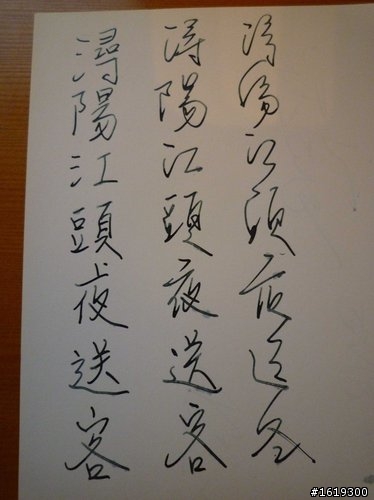 潯陽江頭夜送客
潯陽江頭夜送客
潯陽江頭夜送客
#1619300